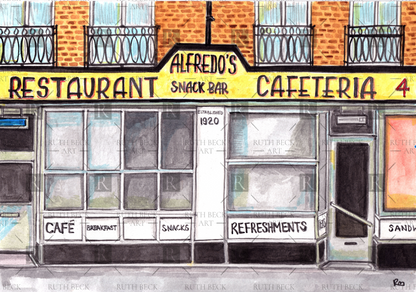 ALFREDO'S
RESTAURANT SNACK BAR CAFETERIA 4
ESTABLISHED
1920
CAFÉ BREAKFAST SNACKS REFRESHMENTS SANDW
RUTH BECK
ART